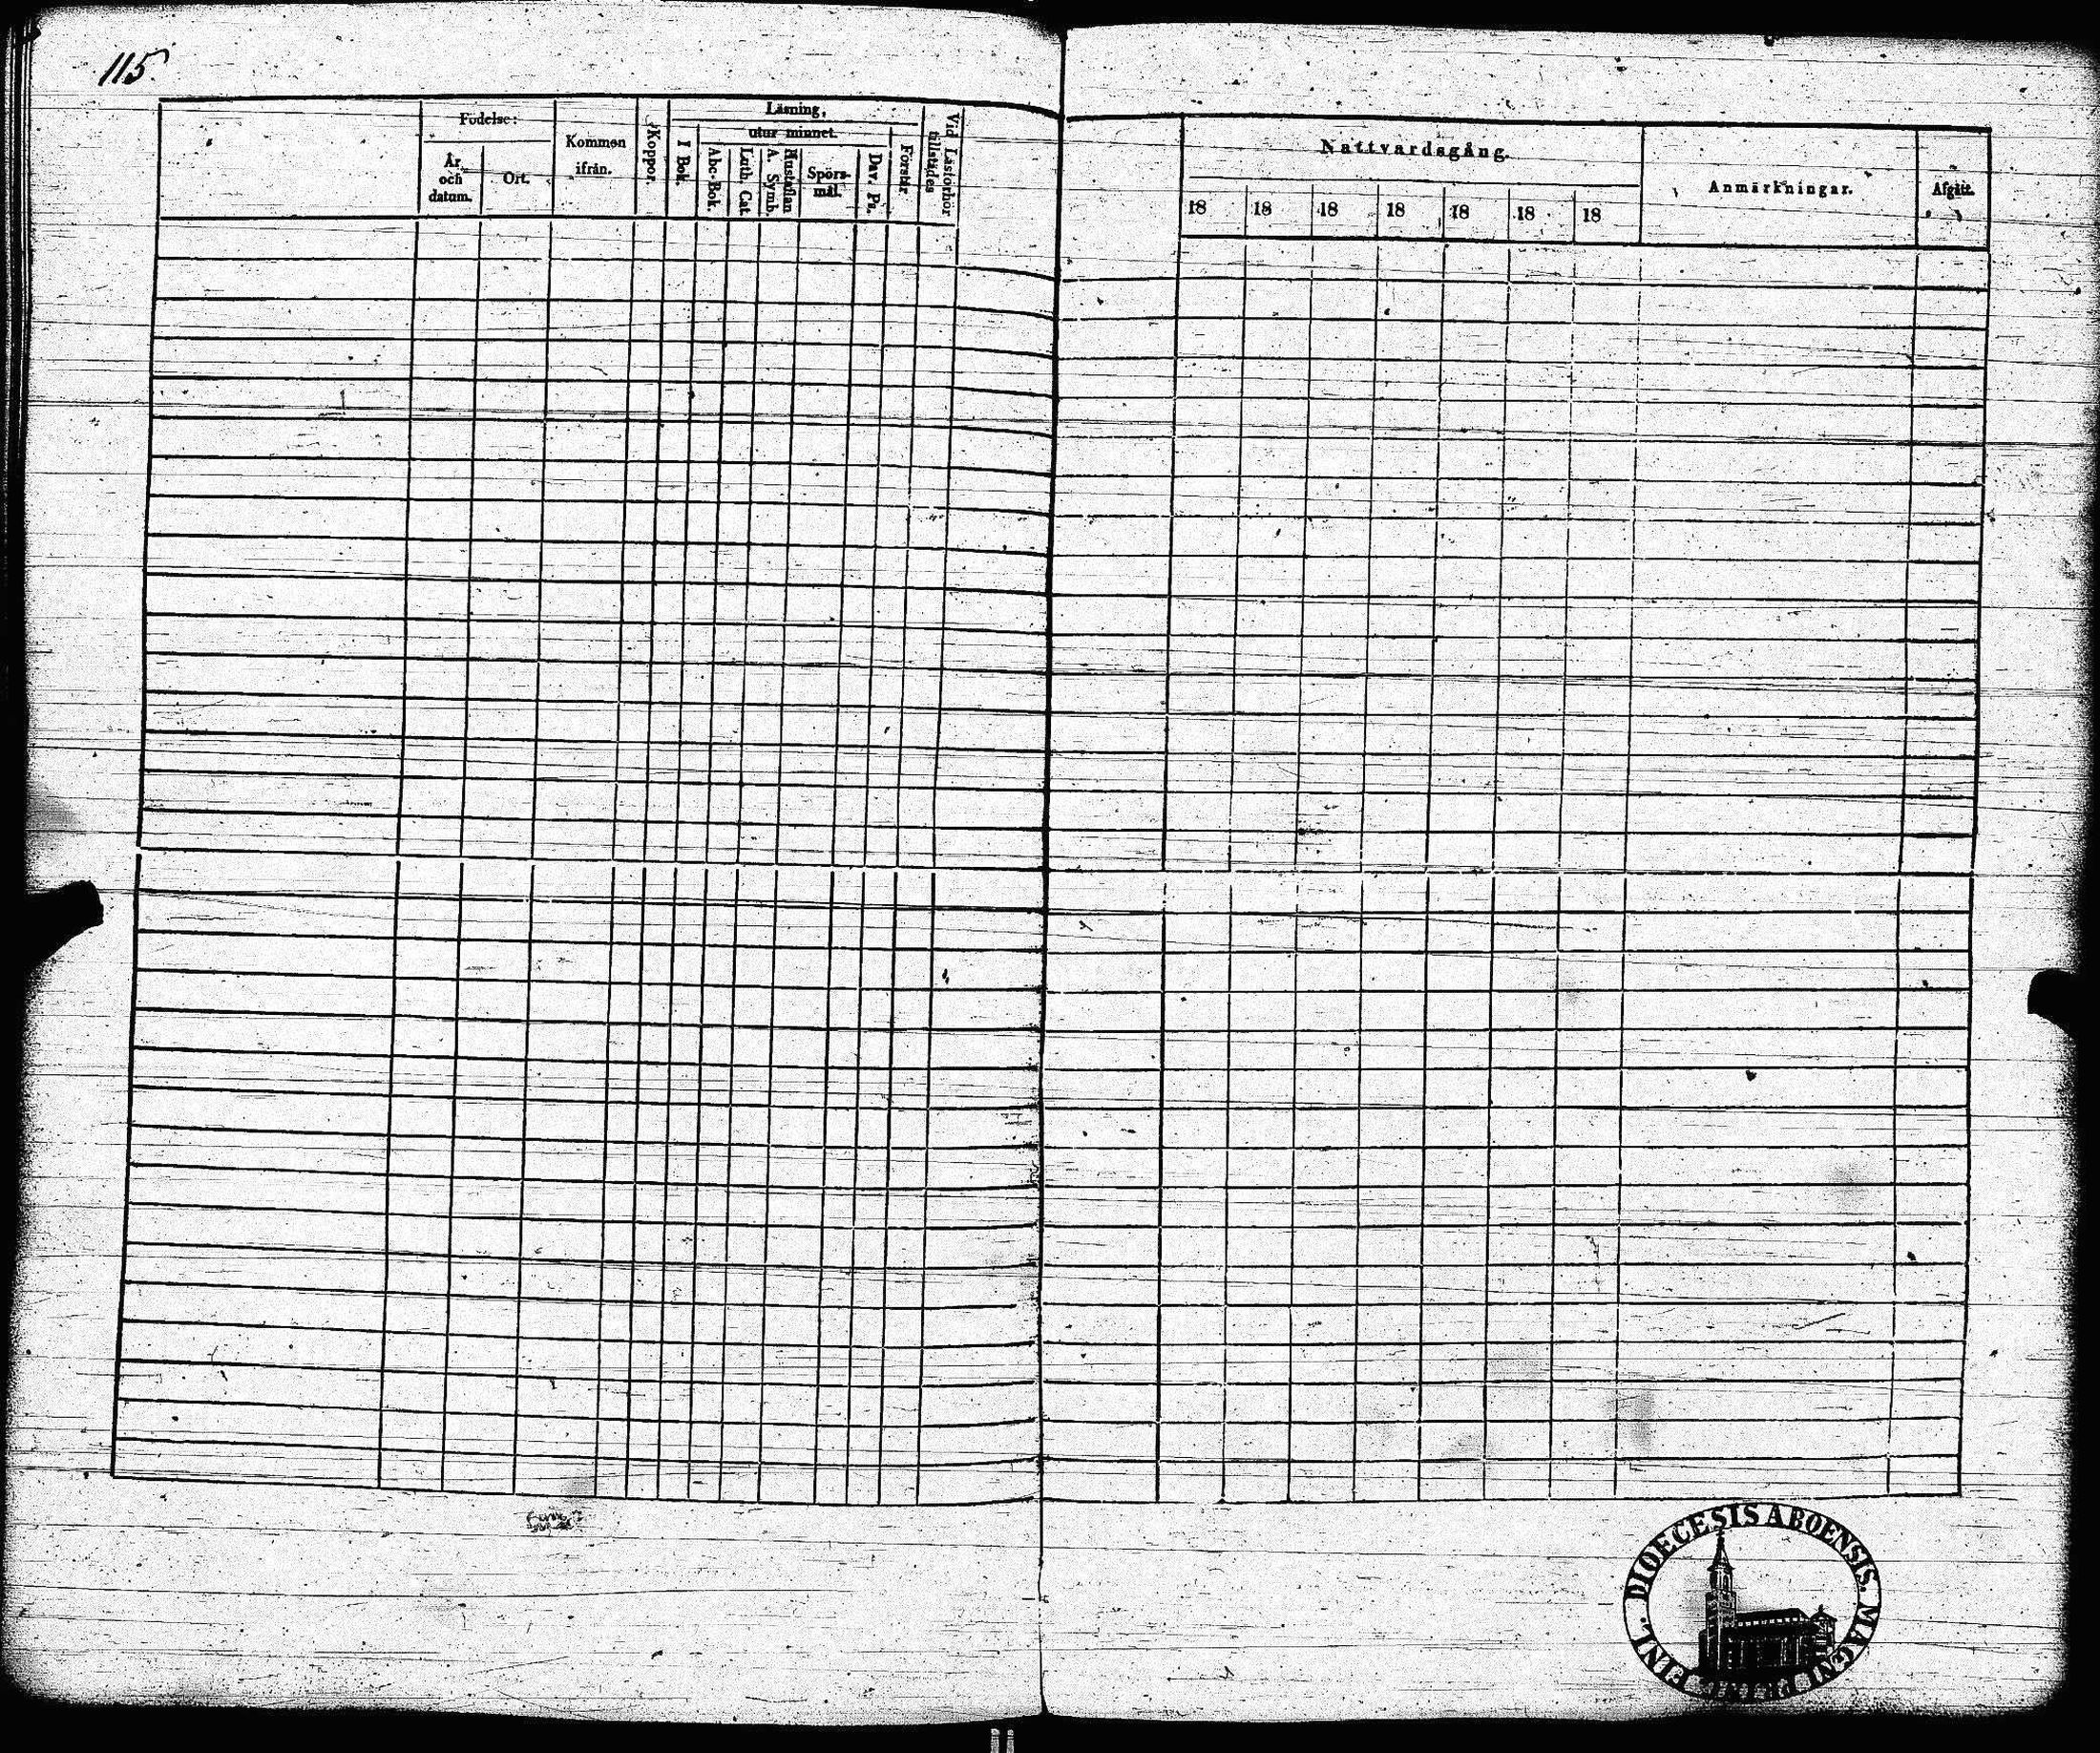 115.
Födelse:
År och datum.
Ort.
Kommen ifrån.
Koppor.
Läsning,
utur minnet.
I Bok.
Abc-Bok.
Luth. Cat.
Hustaflan A. Symb.
Spörs-mål.
Dav. Ps.
Förstår
Vid Läsförhör tillstädes
Nattvardsgång.
18 18 18 18 18 18 18
Anmärkningar.
Afgått.
DIOECESIS ABOENSIS. MAGNI PRINC. FINL.